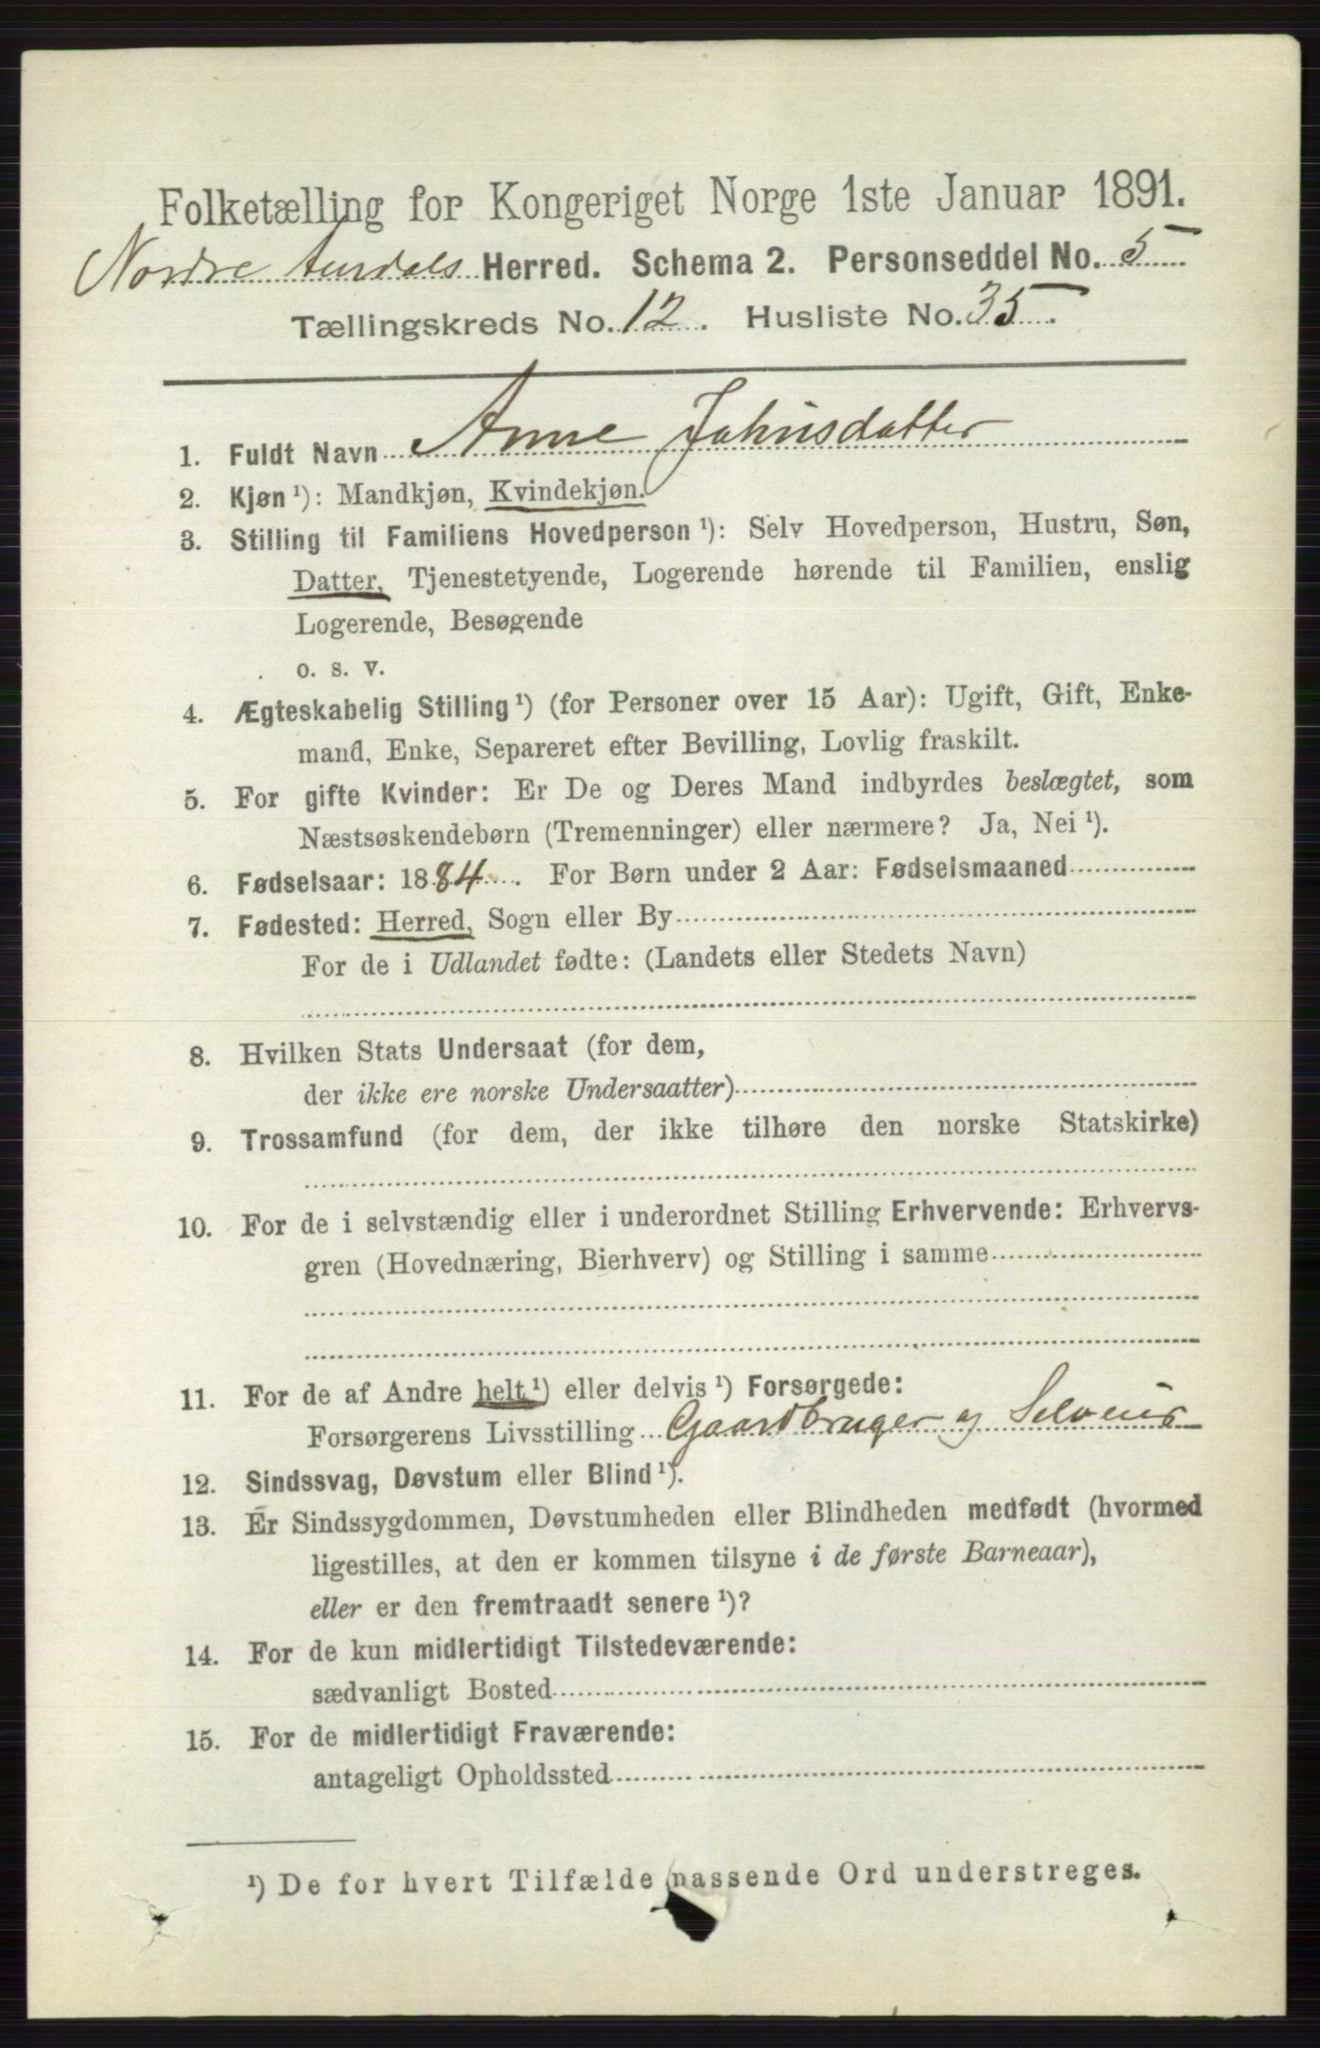 Folketælling for Kongeriget Norge 1ste Januar 1891.
Nordre Aurdals Herred. Schema 2. Personseddel No. 5
Tællingskreds No. 12. Husliste No. 35.
1. Fuldt Navn Anne Johnsdatter
2. Kjøn ¹): Mandkjøn, Kvindekjøn.
3. Stilling til Familiens Hovedperson ¹): Selv Hovedperson, Hustru, Søn,
Datter, Tjenestetyende, Logerende hørende til Familien, enslig
Logerende, Besøgende
o. s. v.
4. Ægteskabelig Stilling ¹) (for Personer over 15 Aar): Ugift, Gift, Enke-
mand, Enke, Separeret efter Bevilling, Lovlig fraskilt.
5. For gifte Kvinder: Er De og Deres Mand indbyrdes beslægtet, som
Næstsøskendebørn (Tremenninger) eller nærmere? Ja, Nei ¹).
6. Fødselsaar: 1884. For Børn under 2 Aar: Fødselsmaaned
7. Fødested: Herred, Sogn eller By
For de i Udlandet fødte: (Landets eller Stedets Navn)
8. Hvilken Stats Undersaat (for dem,
der ikke ere norske Undersaatter)
9. Trossamfund (for dem, der ikke tilhøre den norske Statskirke)
10. For de i selvstændig eller i underordnet Stilling Erhvervende: Erhvervs-
gren (Hovednæring, Bierhverv) og Stilling i samme
11. For de af Andre helt ¹) eller delvis ¹) Forsørgede:
Forsørgerens Livsstilling Gaardbruger og Selveier
12. Sindssvag, Døvstum eller Blind ¹).
13. Er Sindssygdommen, Døvstumheden eller Blindheden medfødt (hvormed
ligestilles, at den er kommen tilsyne i de første Barneaar),
eller er den fremtraadt senere ¹)?
14. For de kun midlertidigt Tilstedeværende:
sædvanligt Bosted
15. For de midlertidigt Fraværende:
antageligt Opholdssted
¹) De for hvert Tilfælde passende Ord understreges.